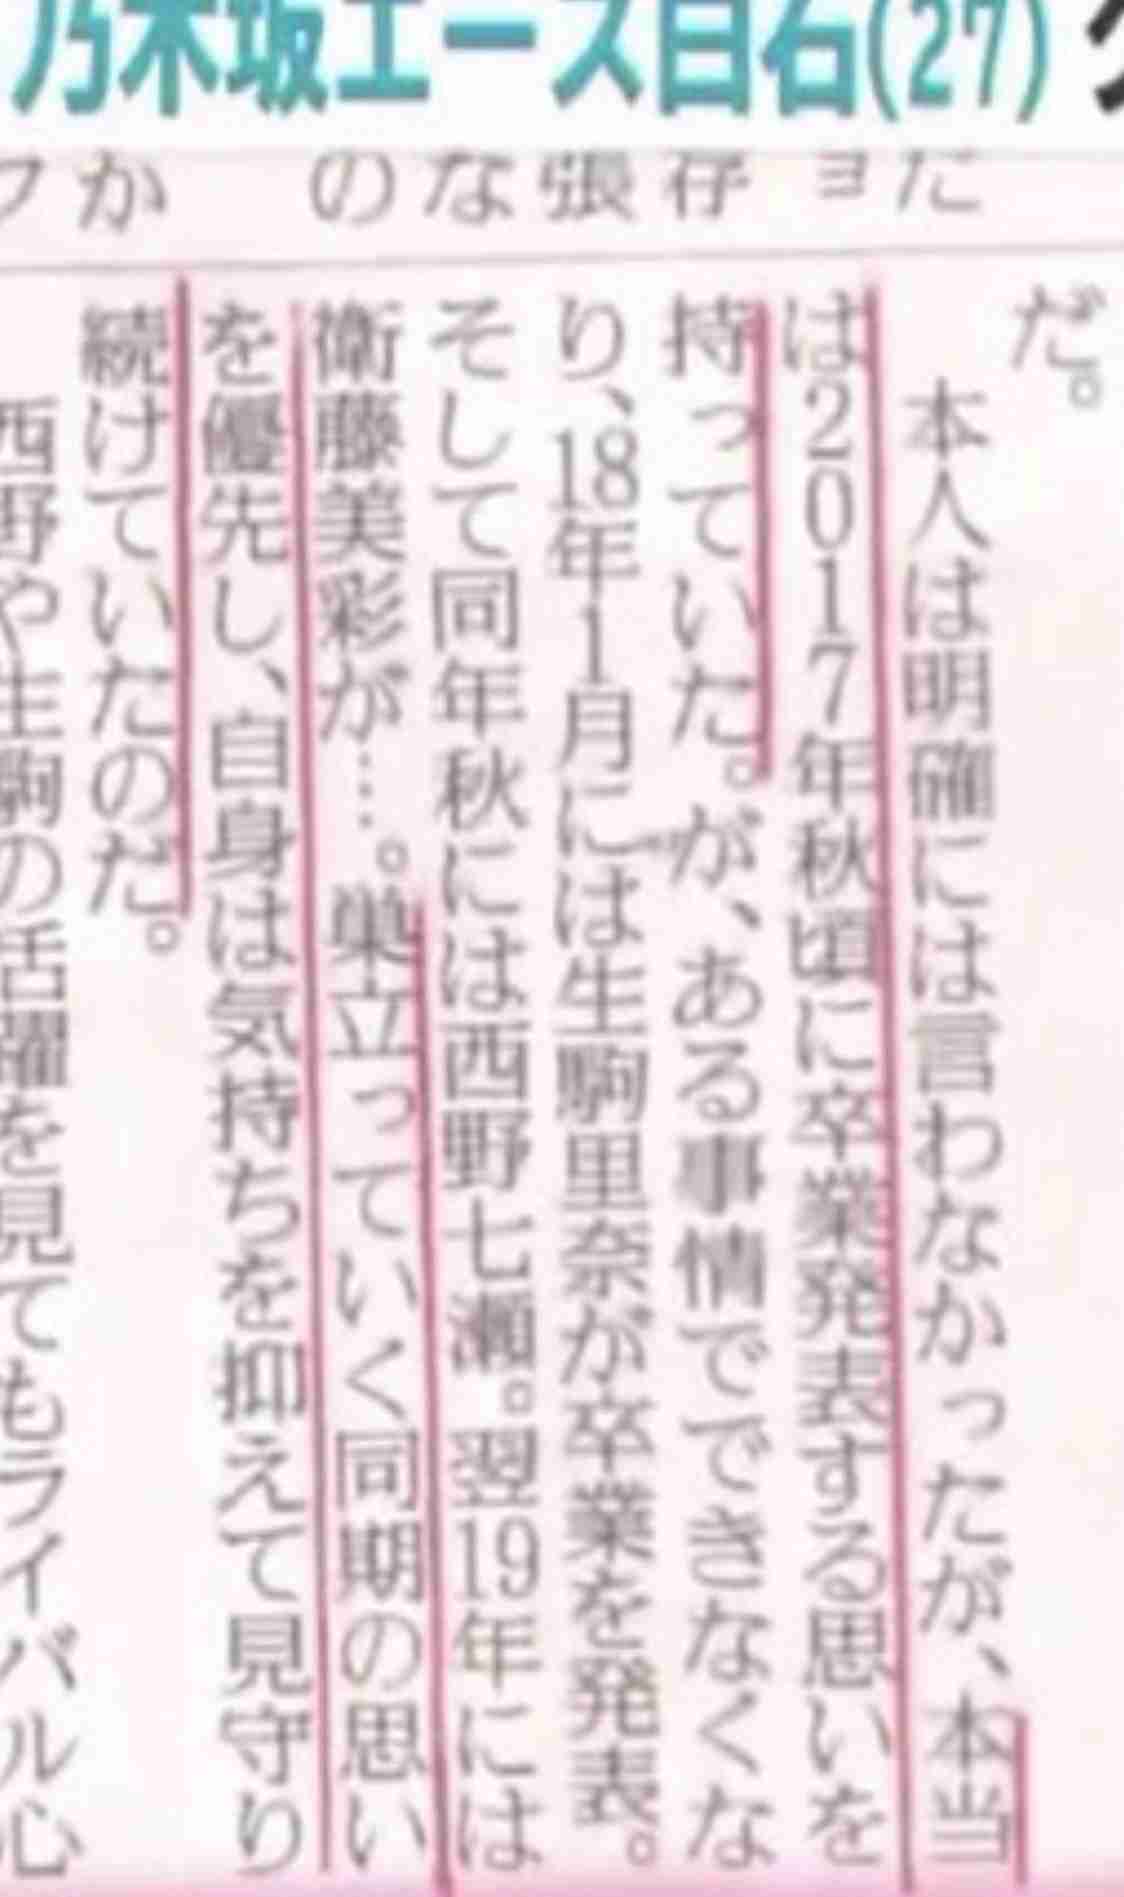 乃木坂エース白石(27)
だ
ョ
存
張
な
の
か
フ
だ。
本人は明確には言わなかったが、本当
は2017年秋頃に卒業発表する思いを
持っていた。が、ある事情でできなくな
り、18年1月には生駒里奈が卒業を発表。
そして同年秋には西野七瀬。翌19年には
衛藤美彩が…。巣立っていく同期の思い
を優先し、自身は気持ちを抑えて見守り
続けていたのだ。
西野や生駒の活躍を見てもライバル心